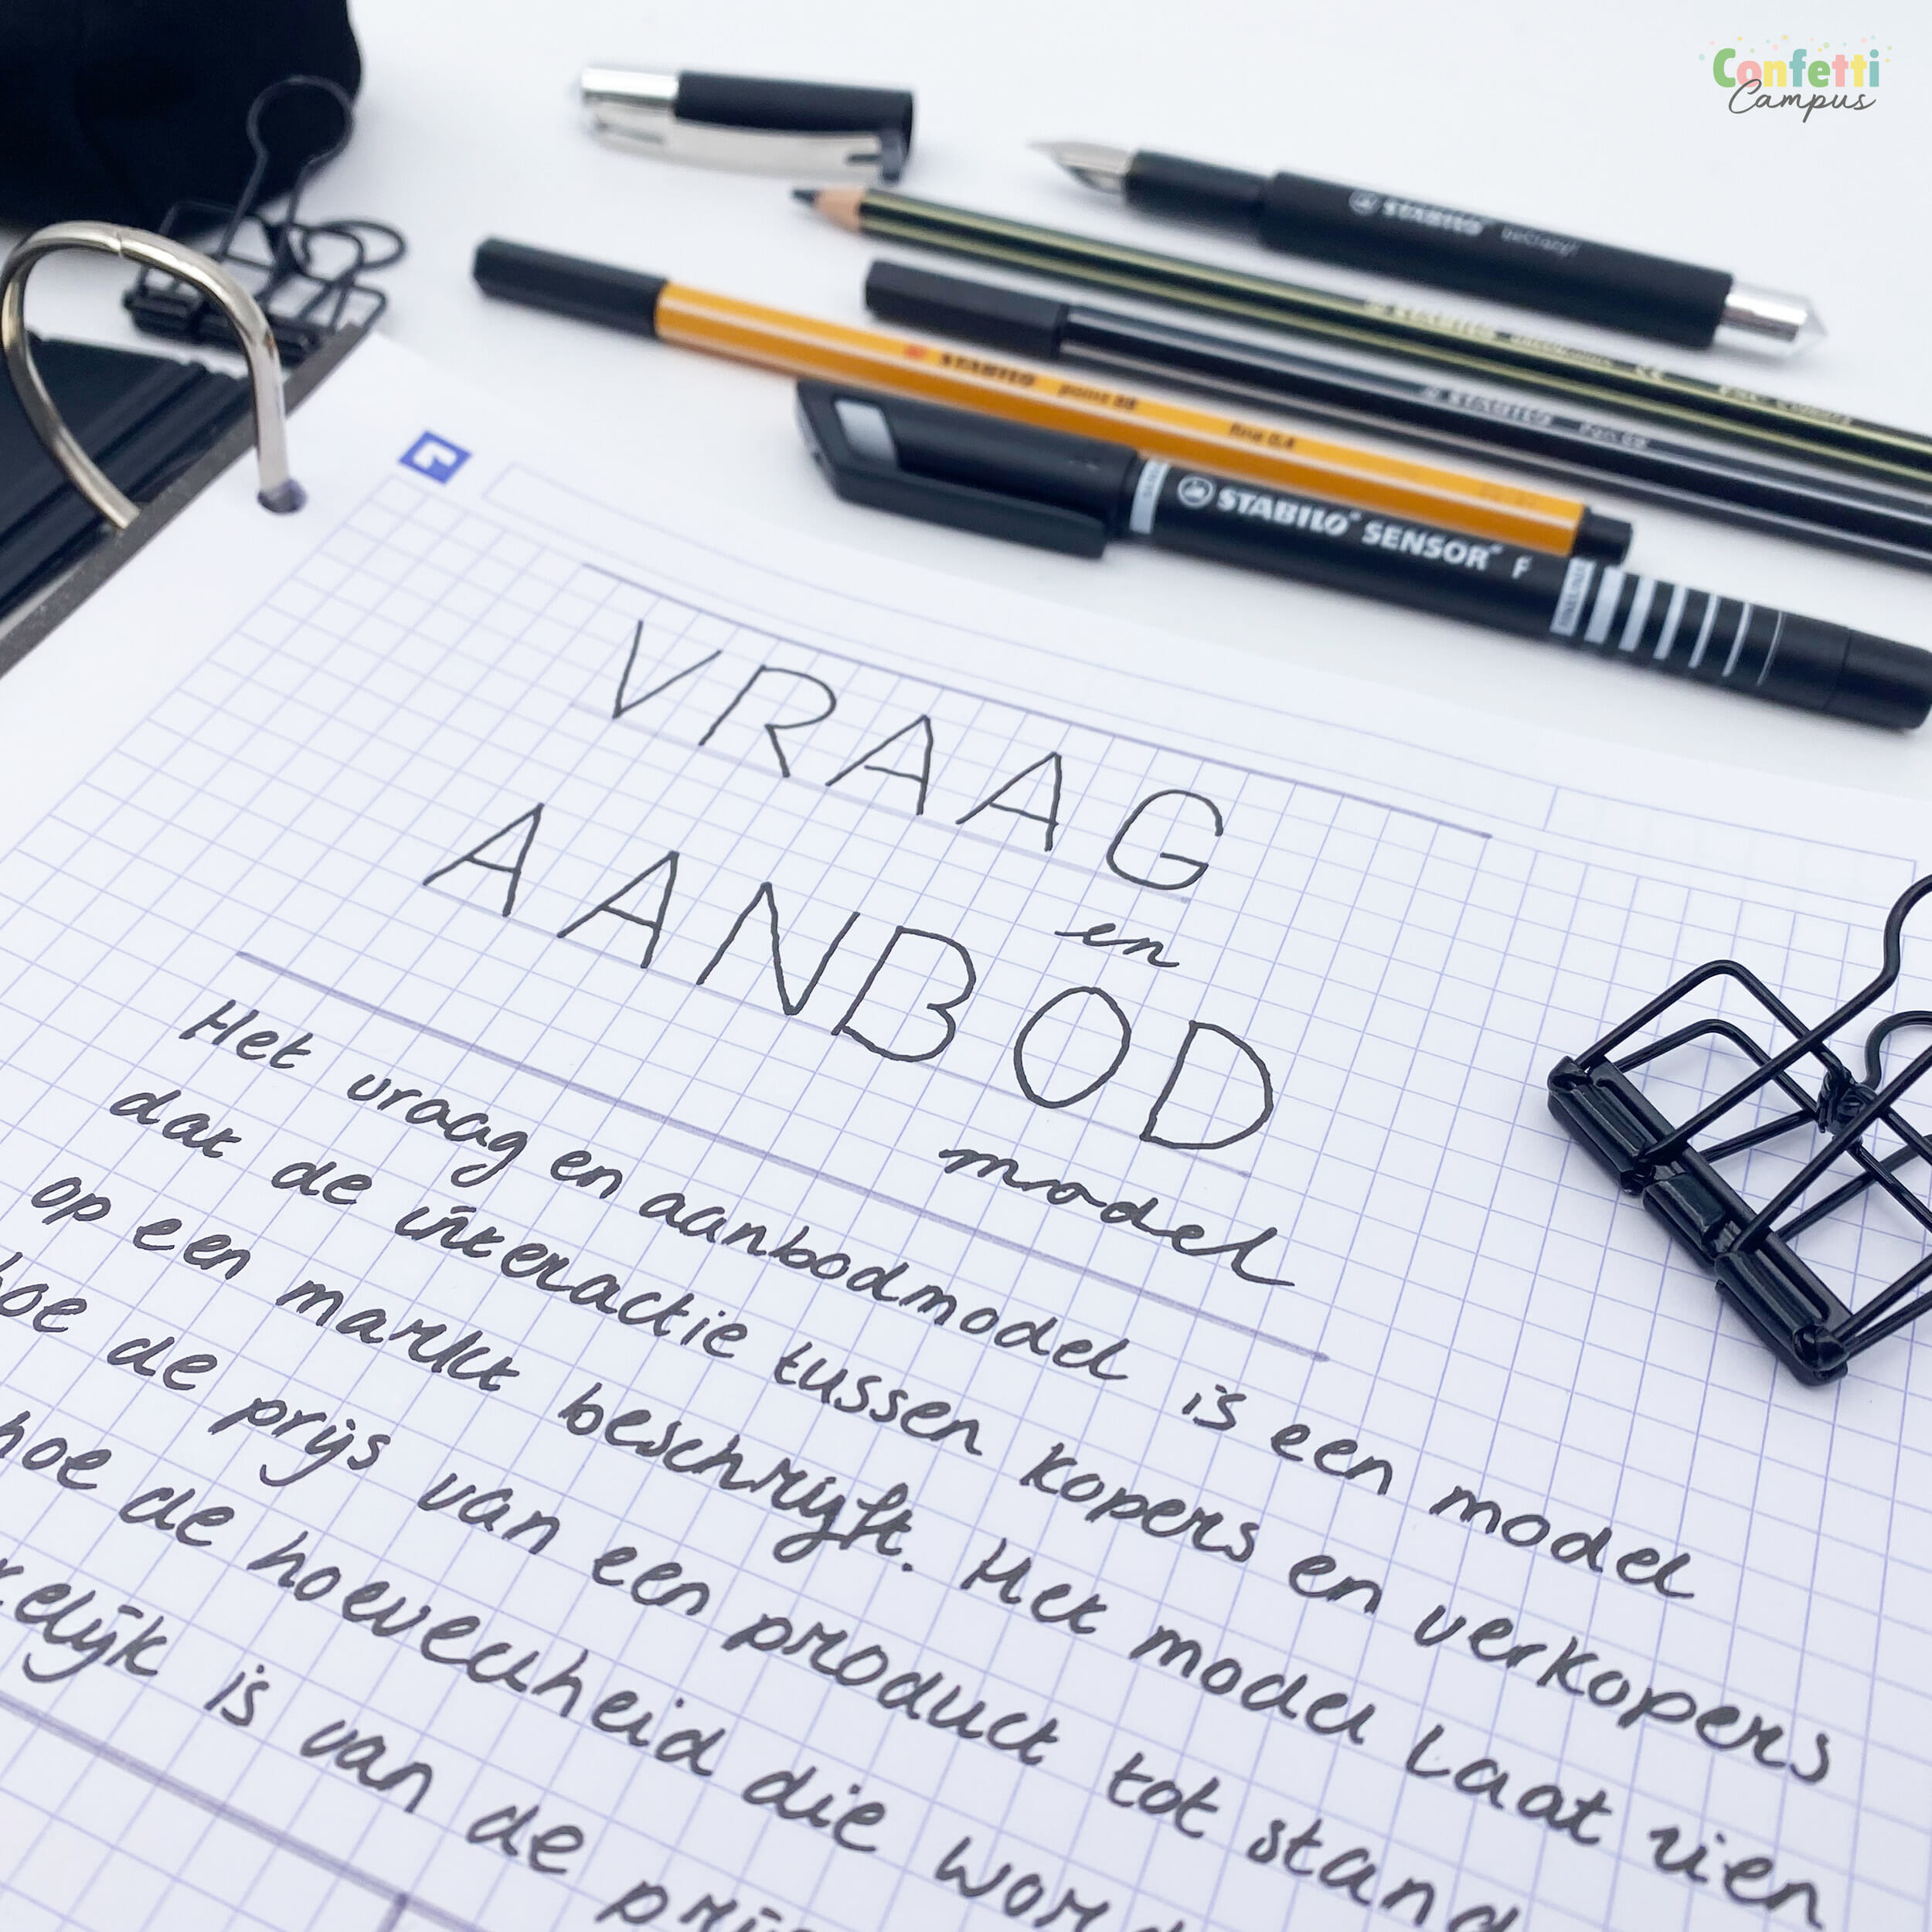 Confetti
Campus
STABILO beCrazy!
STABILO
STABILO
STABILO point 88 fine 0,4
STABILO SENSOR F
VRAAG
en
AANBOD
model
Het vraag en aanbodmodel is een model
dat de interactie tussen kopers en verkopers
op een markt beschrijft. Het model laat zien
hoe de prijs van een product tot stand
hoe de hoeveelheid die
is van de